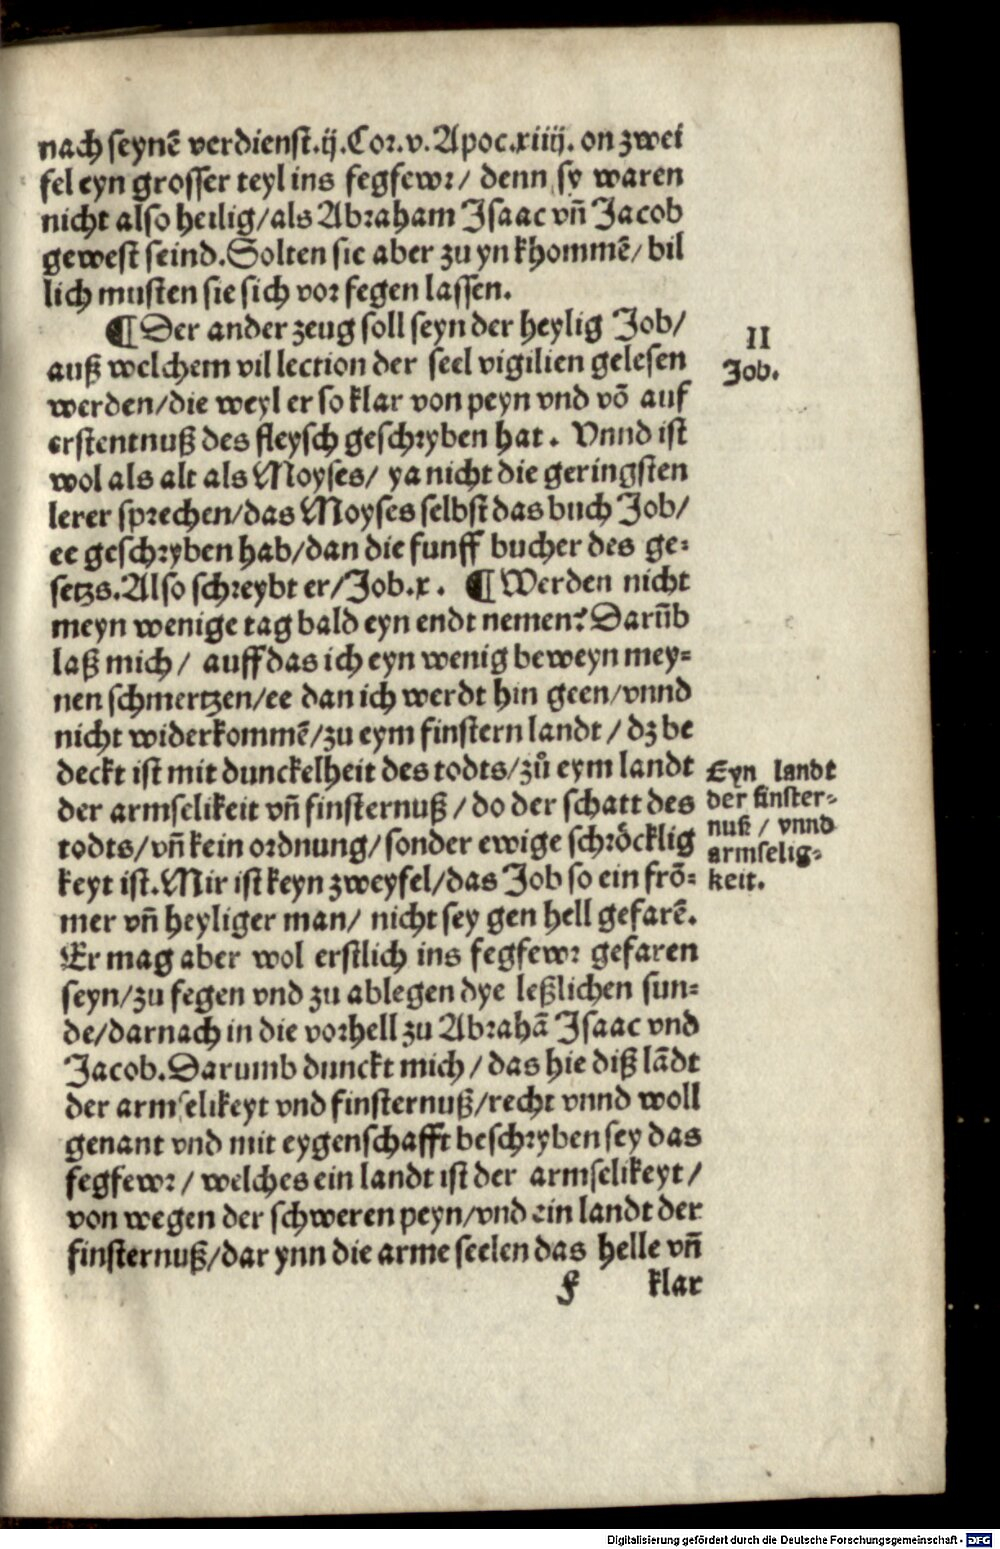 nach seynē verdienst.ij.Cor.v.Apoc.xiiij. on zwei
fel eyn grosser teyl ins fegfewr/ denn sy waren
nicht also heilig/als Abraham Isaac vñ Jacob
gewest seind.Solten sie aber zu yn khommē/ bil
lich musten sie sich vor fegen lassen.
¶ Der ander zeug soll seyn der heylig Job/
II
Job.
auß welchem vil lection der seel vigilien gelesen
werden/die weyl er so klar von peyn vnd vō auf
erstentnuß des fleysch geschryben hat. Vnnd ist
wol als alt als Moyses/ ya nicht die geringsten
lerer sprechen/das Moyses selbst das buch Job/
ee geschryben hab/dan die funff bucher des ge-
setzs.Also schreybt er/Job.x. ¶ Werden nicht
meyn wenige tag bald eyn endt nemen? Darūb
laß mich/ auff das ich eyn wenig beweyn mey-
nen schmertzen/ee dan ich werdt hin geen/vnnd
nicht widerkommē/zu eym finstern landt/dz be
deckt ist mit dunckelheit des todts/zů eym landt
der armselikeit vñ finsternuß/do der schatt des
todts/vñ kein ordnung/sonder ewige schröcklig
keyt ist.Mir ist keyn zweyfel/das Job so ein frō-
Eyn landt
der finster-
nuß/ vnnd
armselig-
keit.
mer vñ heyliger man/ nicht sey gen hell gefarē.
Er mag aber wol erstlich ins fegfewr gefaren
seyn/zu fegen vnd zu ablegen dye leßlichen sun-
de/darnach in die vorhell zu Abrahā Isaac vnd
Jacob.Darumb dunckt mich/das hie diß lādt
der armselikeyt vnd finsternuß/recht vnnd woll
genant vnd mit eygenschafft beschryben sey das
fegfewr/ welches ein landt ist der armselikeyt/
von wegen der schweren peyn/vnd ein landt der
finsternuß/dar ynn die arme seelen das helle vñ
f klar
Digitalisierung gefördert durch die Deutsche Forschungsgemeinschaft - DFG